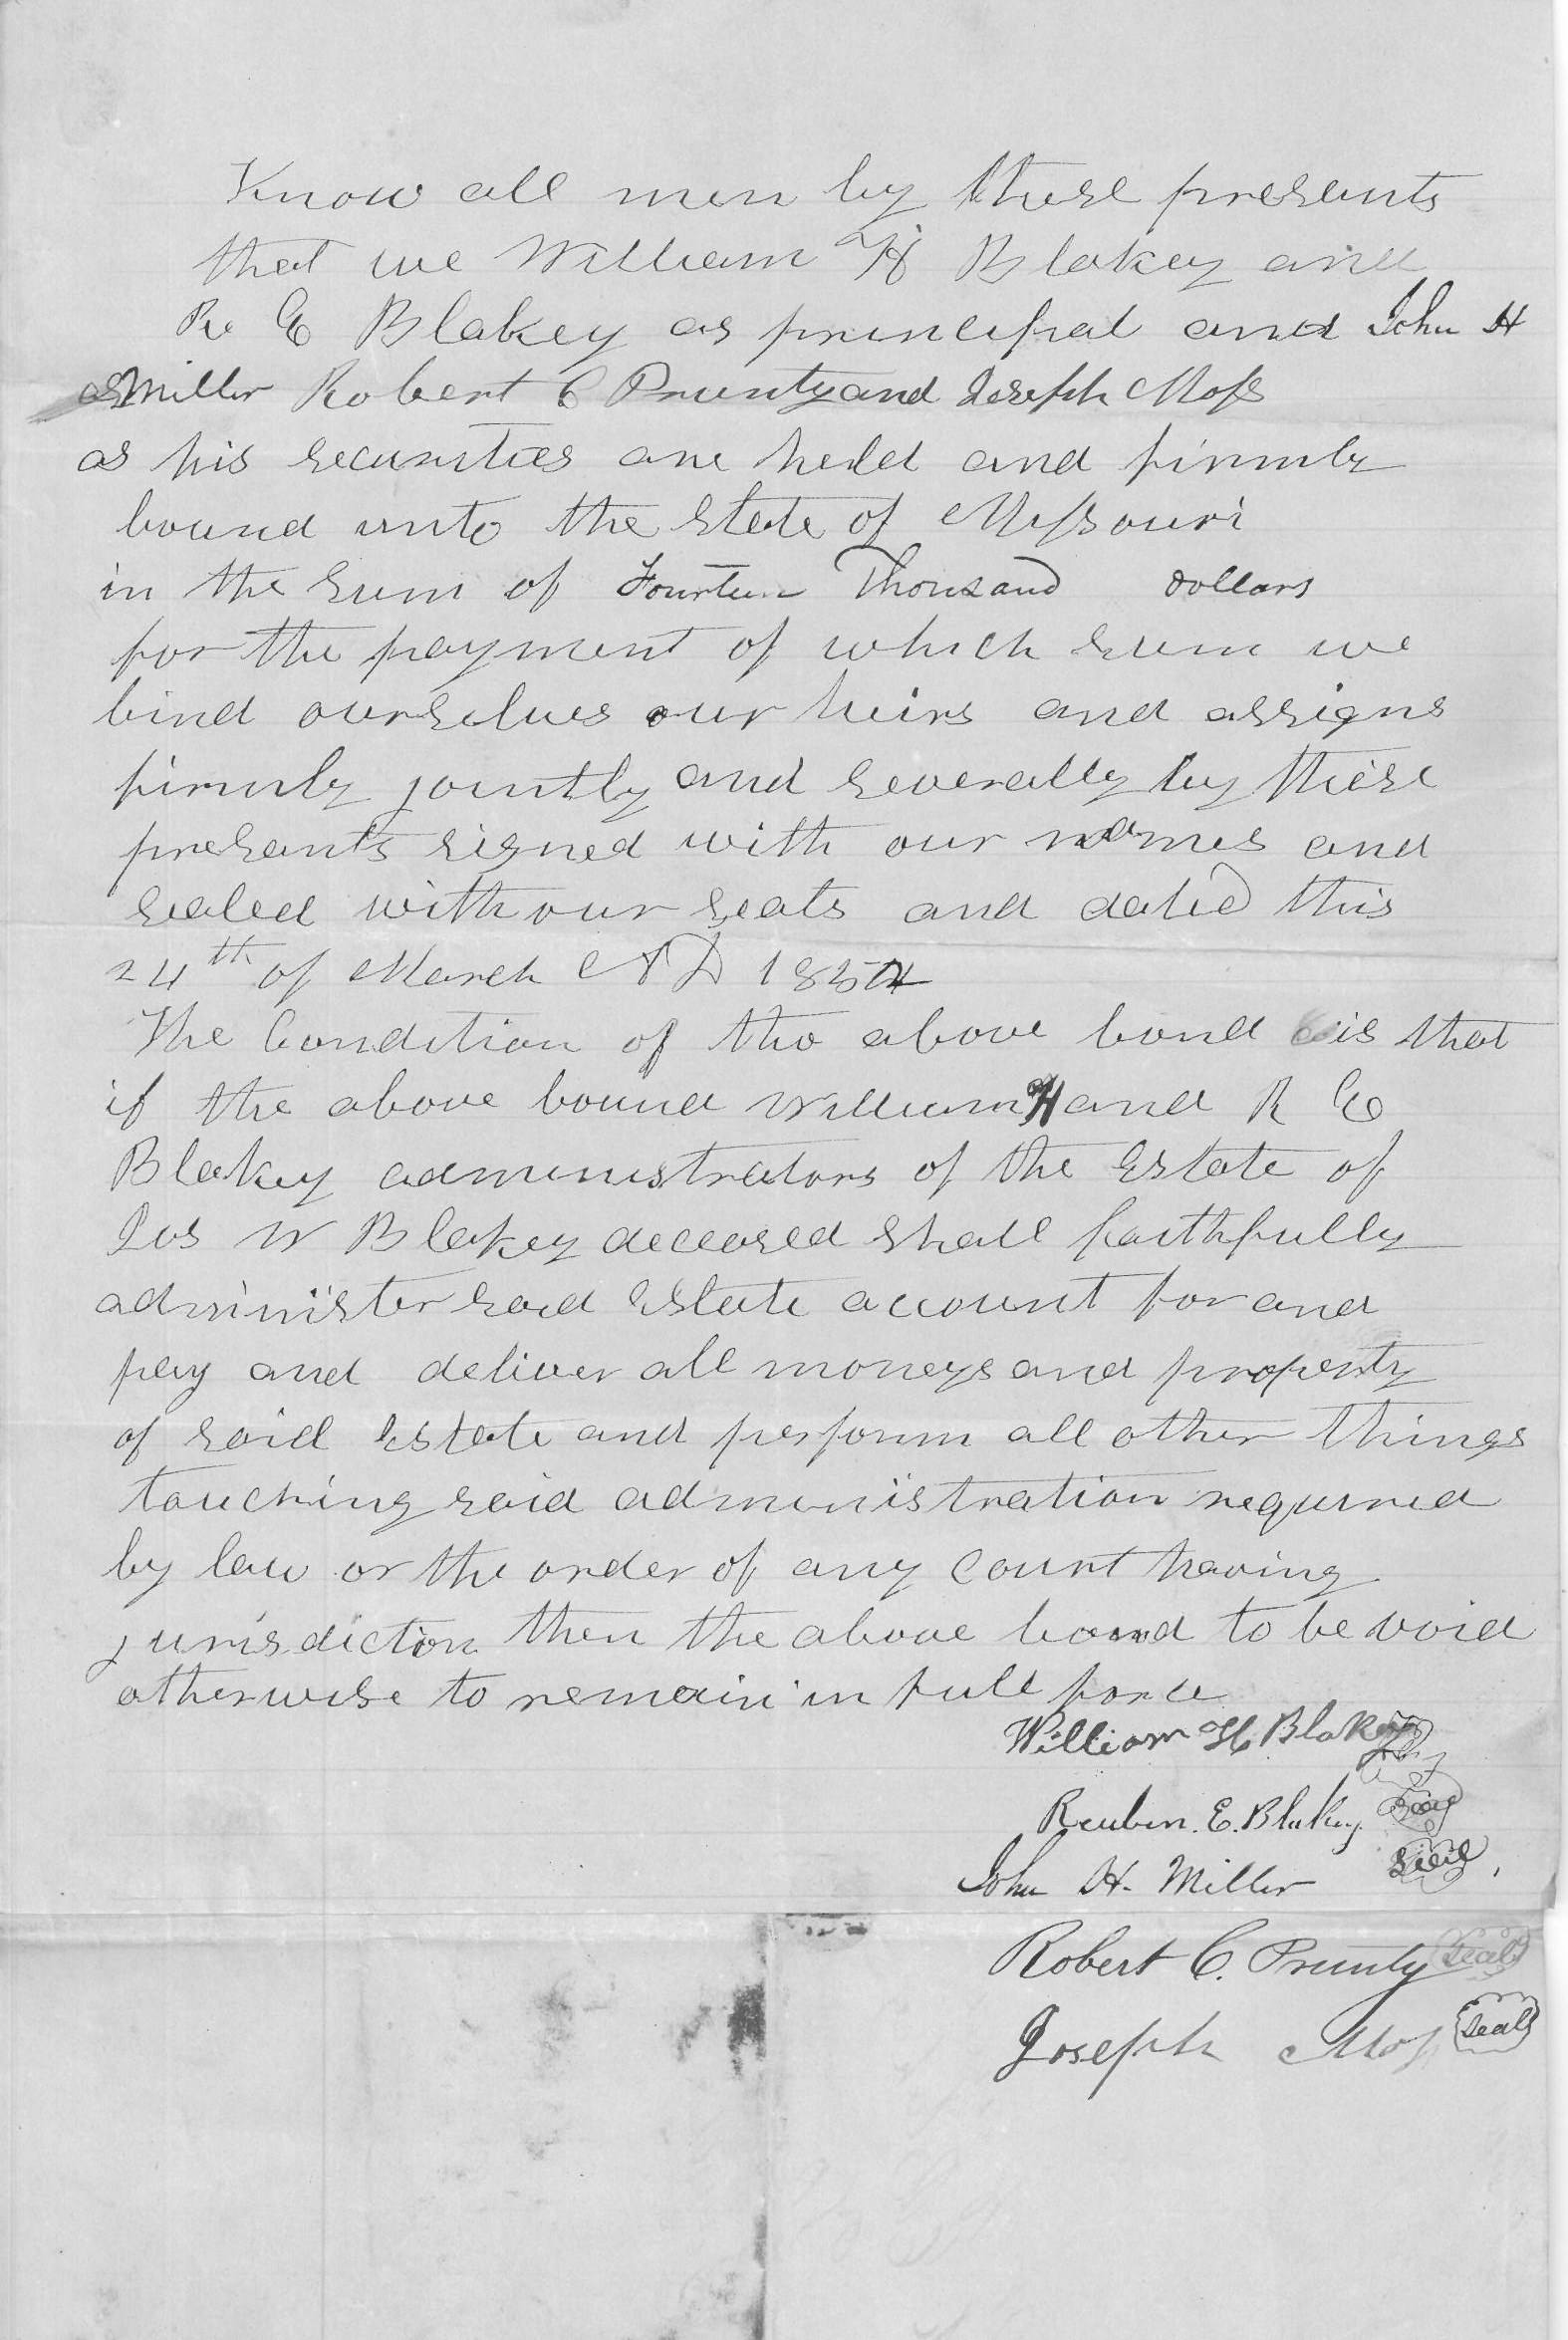 Know all men by these presents
that we William H Blakey and
R E Blakey as principal and John H
Miller Robert C Prunty and Joseph Moss
as his securities are held and firmly
bound unto the State of Missouri
in the sum of Fourteen Thousand dollars
for the payment of which sum we
bind ourselves our heirs and assigns
firmly jointly and severally by these
presents signed with our names and
sealed with our seals and dated this
24th of March AD 1854
The Condition of the above bond is that
if the above bound William H and R E
Blakey administrators of the Estate of
Jos W Blakey deceased shall faithfully
administer said Estate account for and
pay and deliver all moneys and property
of said Estate and perform all other things
touching said administration required
by law or the order of any Court having
jurisdiction then the above bond to be void
otherwise to remain in full force
William H Blakey
Reuben. E. Blakey. Seal
John H. Miller Seal
Robert C. Prunty Seal
Joseph Moss Seal